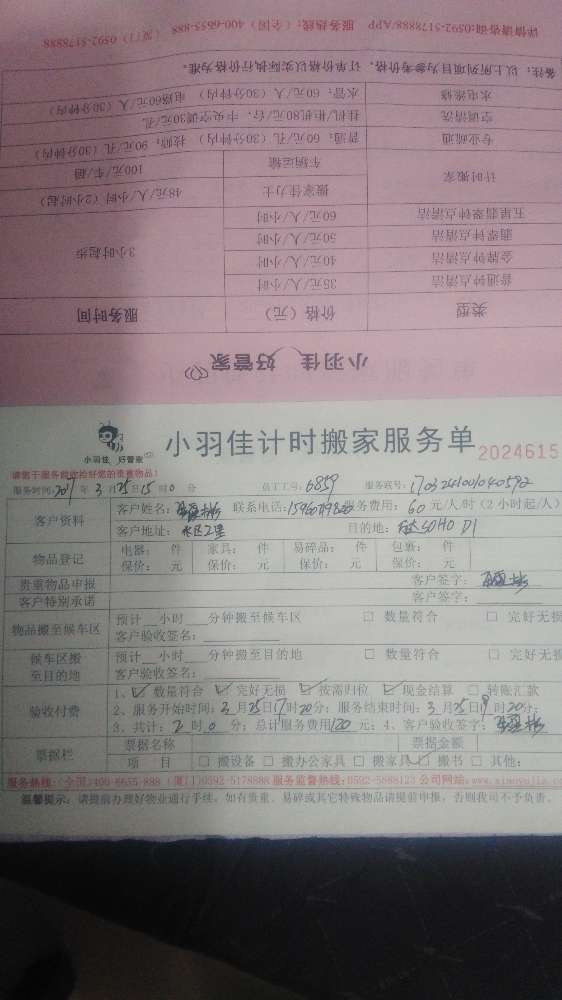 详情请咨询:0592-5178888/APP 服务热线:(全国)400-6655-888 (厦门)0592-5178888
备注:以上所列项目为参考价格,订单价格以实际执行价格为准。
小羽佳 好管家
类型 价格(元) 服务时间
普通钟点清洁 35元/人/小时 3小时起步
金牌钟点清洁 40元/人/小时
翡翠钟点清洁 50元/人/小时
五星翡翠钟点清洁 60元/人/小时
计时搬家 搬家佳力士 48元/人/小时(2小时起)
车辆运输 100元/车/趟
专业疏通 普通:60元/孔(30分钟内) 技师:90元/孔(30分钟内)
空调清洗 挂机/柜机80元/台,中央空调30元/孔
水电维修 水管:60元/人(30分钟内) 电路60元/人(30分钟内)
小羽佳 好管家
小羽佳计时搬家服务单 2024615
请您于服务前收拾好您的贵重物品!
服务时间: 年3月25日15时0分 员工工号:6859 服务账号:
客户资料 客户姓名: 联系电话: 服务费用:60元/人/时(2小时起/人)
客户地址: 目的地: SOHO D1
物品登记 电器: 件 家具: 件 易碎品: 件 包裹: 件
保价: 元 保价: 元 保价: 元 保价: 元
贵重物品申报 客户签字:
客户特别承诺 客户签字:
物品搬至候车区 预计__小时___分钟搬至候车区 □ 数量符合 □ 完好无损
客户验收签名:
候车区搬至目的地 预计__小时___分钟搬至目的地 □ 数量符合 □ 完好无损
客户验收签名:
验收付费 1、☑ 数量符合 ☑ 完好无损 ☑ 按需归位 ☑ 现金结算 □ 转账汇款
2、服务开始时间:3月25日17时20分;服务结束时间:3月25日19时20分;
3、共计:2时0分;总计服务费用120元;4、客户验收签字:
票据栏 票据名称 票据金额
项 目 □ 搬设备 □ 搬办公家具 □ 搬家具 ☑ 搬书 □ 其他:
服务热线:(全国)400-6655-888 (厦门)0592-5178888 服务监督热线:0592-5888123 公司网站:www.xiaoyujia.com
温馨提示:请提前办理好物业通行手续,如有贵重、易碎或其它特殊物品请提前申报,否则我司不予负责。